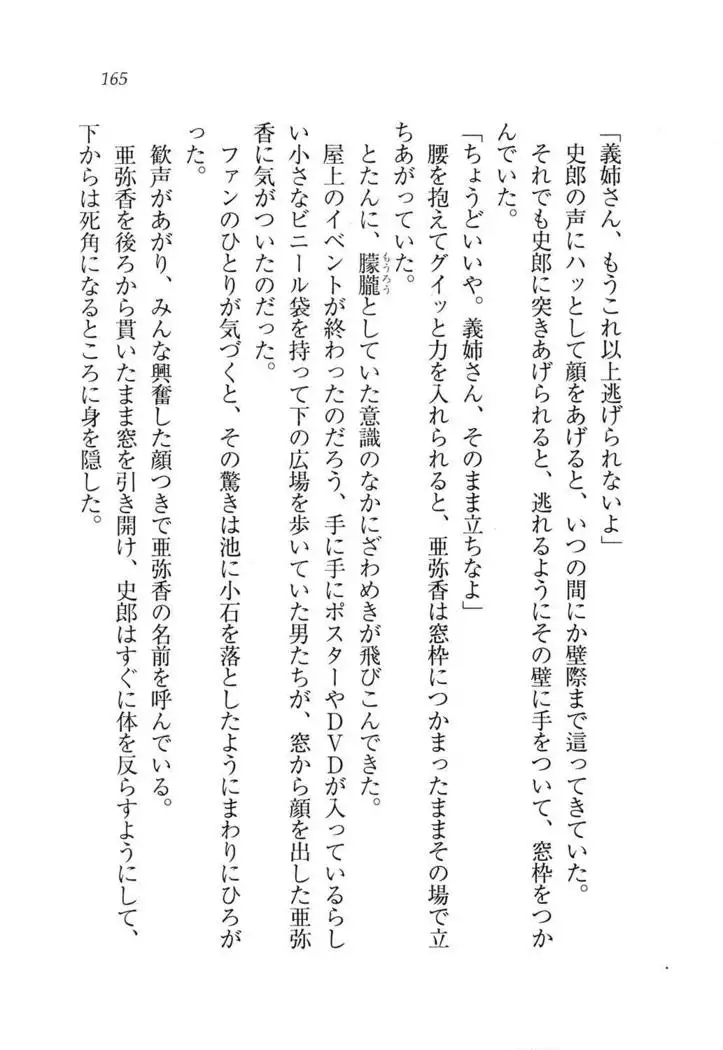 165
「義姉さん、もうこれ以上逃げられないよ」
史郎の声にハッとして顔をあげると、いつの間にか壁際まで這ってきていた。
それでも史郎に突きあげられると、逃れるようにその壁に手をついて、窓枠をつか
んでいた。
「ちょうどいいや。義姉さん、そのまま立ちなよ」
腰を抱えてグイッと力を入れられると、亜弥香は窓枠につかまったままその場で立
ちあがっていた。
とたんに、朦朧もうろうとしていた意識のなかにざわめきが飛びこんできた。
屋上のイベントが終わったのだろう、手に手にポスターやDVDが入っているらし
い小さなビニール袋を持って下の広場を歩いていた男たちが、窓から顔を出した亜弥
香に気がついたのだった。
ファンのひとりが気づくと、その驚きは池に小石を落としたようにまわりにひろが
った。
歓声があがり、みんな興奮した顔つきで亜弥香の名前を呼んでいる。
亜弥香を後ろから貫いたまま窓を引き開け、史郎はすぐに体を反らすようにして、
下からは死角になるところに身を隠した。